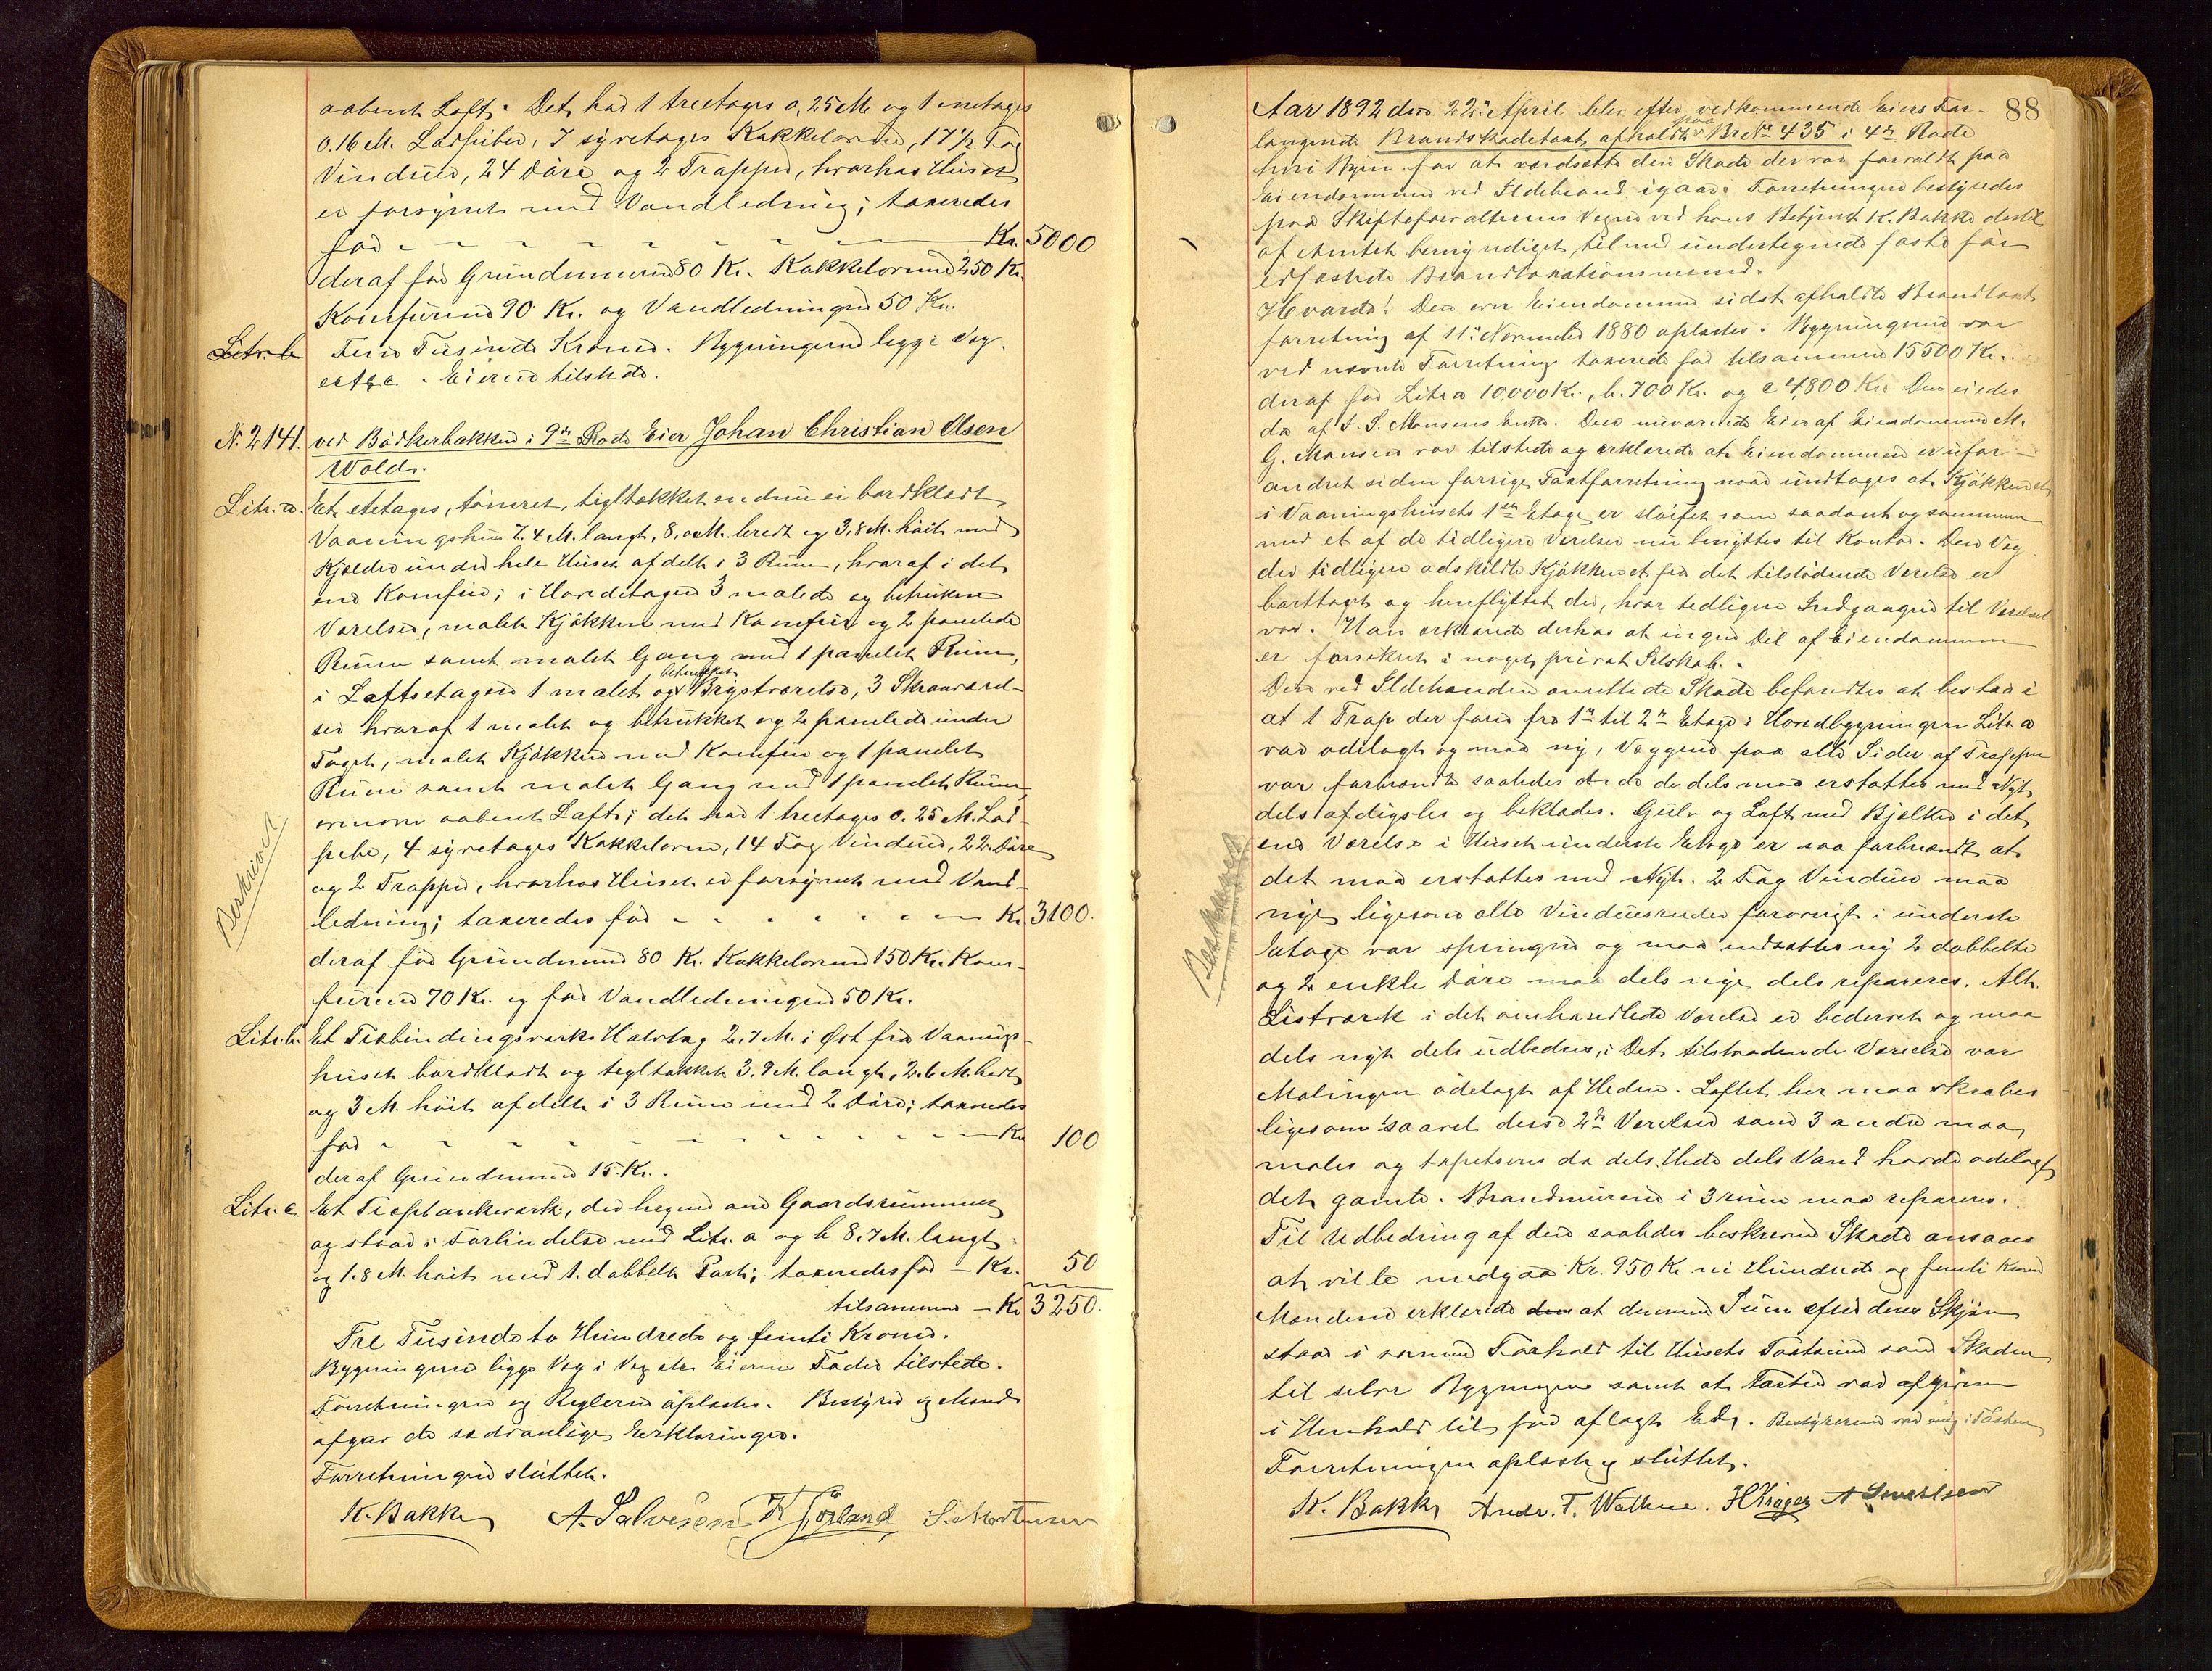 aabent Loft. Det har 1 treetages 0,25 M. og 1 enetages
0.16 M. Ladpibe, 7 syretages Kakkelovne, 17½ Fag
Vinduer, 24 Døre og 2 Trapper, hvorhos Huset
er forsynet med Vandledning; taxeredes
for - - - - - - - Kr. 5000
deraf for Grundmuren 80 Kr. Kakkelovnene 250 Kr.
Komfurene 90 Kr. og Vandledningen 50 Kr.
Litr. b. Fem Tusinde Kroner. Bygningerne ligge Væg
Eieren tilstede.
N. 2141. ved Bødkerbakken i 9de Rode Eier Johan Christian Olsen
Wold.
Litr. a. Et etetages, tømret, tegltækket endnu ei bordklædt
Vaaningshus 7.4 M. langt, 8,0 M. bredt og 3,8 M. høit med
Kjælder under hele Huset afdelt i 3 Rum, hvoraf i det
ene Komfur; i Hovedetagen 3 malede og betrukne
Værelser, malet Kjøkken med Komfur og 2 panelede
Rum samt malet Gang med 1 panelet Rum,
i Loftsetagen 1 malet og betrukket Brystværelse, 3 Skraaværel-
ser hvoraf 1 malet og betrukket og 2 panelede under
Taget, malet Kjøkken med Komfur og 1 panelet
Rum samt malet Gang med 1 panelet Rum,
ovenover aabent Loft; det har 1 treetages 0.25 M. Lad-
pibe, 4 syretages Kakkelovne, 14 Fag Vinduer, 22 Døre
og 2 Trapper, hvorhos Huset er forsynet med Vand-
ledning; taxeredes for - - - - - - Kr. 3100.
Beskrevet
deraf for Grundmuren 80 Kr. Kakkelovnene 150 Kr. Kom-
furene 70 Kr. og for Vandledningen 50 Kr.
Litr. b. Et Træbindingsværks Halvtag 2.7 M. i Øst fra Vaanings-
huset bordklædt og tegltækket 3.9 M. langt, 2.6 M. bredt
og 3 M. høit afdelt i 3 Rum med 2 Døre; taxeredes
for - - - - - - - - - Kr. 100
deraf Grundmuren 15 Kr.
Litr. c. Et Træplankeværk, der hegner om Gaardsrummet
og staar i Forbindelse med Litr. a og b 8.7 M. langt
og 1.8 M. høit med 1 dobbelt Port; taxeredes for - Kr. 50
tilsammen - Kr. 3250.
Tre Tusinde to Hundrede og femti Kroner.
Bygningerne ligge Væg i Væg Eierens Fader tilstede.
Forretningen og Reglerne oplæstes. Bestyrer og Mænd
afgav de sædvanlige Erklæringer.
Forretningen sluttet.
K. Bakke A. Salvesen K Gjørland S. Mortensen
88
Aar 1892 den 22de April blev efter vedkommende Eiers For-
langende Brandskadetaxt afholdt paa Br. No 435 i 4de Rode
heri Byen for at værdsætte den Skade der var forvoldt paa
Eiendommen ved Ildebrand igaar. Forretningen bestyredes
paa Skifteforvalterens Vegne ved hans Betjent K. Bakke dertil
af Amtet bemyndiget, tilmed undertegnede faste før
edfæstede Brandtaxationsmænd.
Hvorda! Den over Eiendommen sidst afholdte Brandtaxt
forretning af 11te November 1880 oplæstes. Bygningerne var
ved nævnte Forretning taxerede for tilsammen 15500 Kr.
deraf for Litr a 10,000 Kr., b. 700 Kr. og c 4,800 Kr. Den eiedes
da af S. S. Monsens Enke. Den nuværende Eier af Eiendommen M.
G. Monsen var tilstede og erklærede at Eiendommen er ufor-
andret siden forrige Taxtforretning naar undtages at Kjøkkenet
i Vaaningshusets 1ste Etage er sløifet som saadant og sammen
med et af de tidligere Værelser nu benyttes til Kontor. Den Væg
der tidligere adskildte Kjøkkenet fra det tilstødende Værelse er
borttaget og henflyttet der, hvor tidligere Indgangen til Værelset
var. Han erklærede derhos at ingen Del af Eiendommen
er forsikret i noget privat Selskab.
Den ved Ildebranden anrettede Skade befandtes at bestaa i
at 1 Trap der fører fra 1ste til 2den Etage i Hovedbygningen Litr a
var ødelagt og maa ny, Væggene paa alle Sider af Trappen
var forbrændt saaledes at de dels maa erstattes med Nyt
dels afdigsles og beklædes. Gulv og Loft med Bjælker i det
ene Værelse i Husets underste Etage er saa forbrændt at
det maa erstattes med Nyt. 2 Fag Vinduer maa
nye ligesom alle Vinduesruder forøvrigt i underste
Etage var sprungne og maa indsættes ny 2 dobbelte
Beskrevet
og 2 enkle Døre maa dels nye dels repareres. Alt
Listværk i det omhandlede Værelse er bedærvet og maa
dels nyt dels udbedres, i Det tilstødende Værelse var
Malingen ødelagt af Heden. Loftet her maa skrabes
ligesom saavel disse 2de Værelser som 3 andre maa
males og tapetseres da dels Hede dels Vand havde ødelagt
det gamle. Brandmurene i 3 rum maa repareres.
Til Udbedring af den saaledes beskrevne Skade ansaaes
at ville medgaa Kr. 950 Kr ni Hundrede og femti Kroner
Mændene erklærede at denne Sum efter deres Skjøn
staar i samme Forhold til Husets Taxtsum som Skaden
til selve Bygningen samt at Taxten var afgiven
i Henhold til før aflagt Ed. Bestyreren var enig i Taxten
Forretningen oplæst og sluttet.
K. Bakke Andr. T. Wathne. H Krøger A Sivertsen